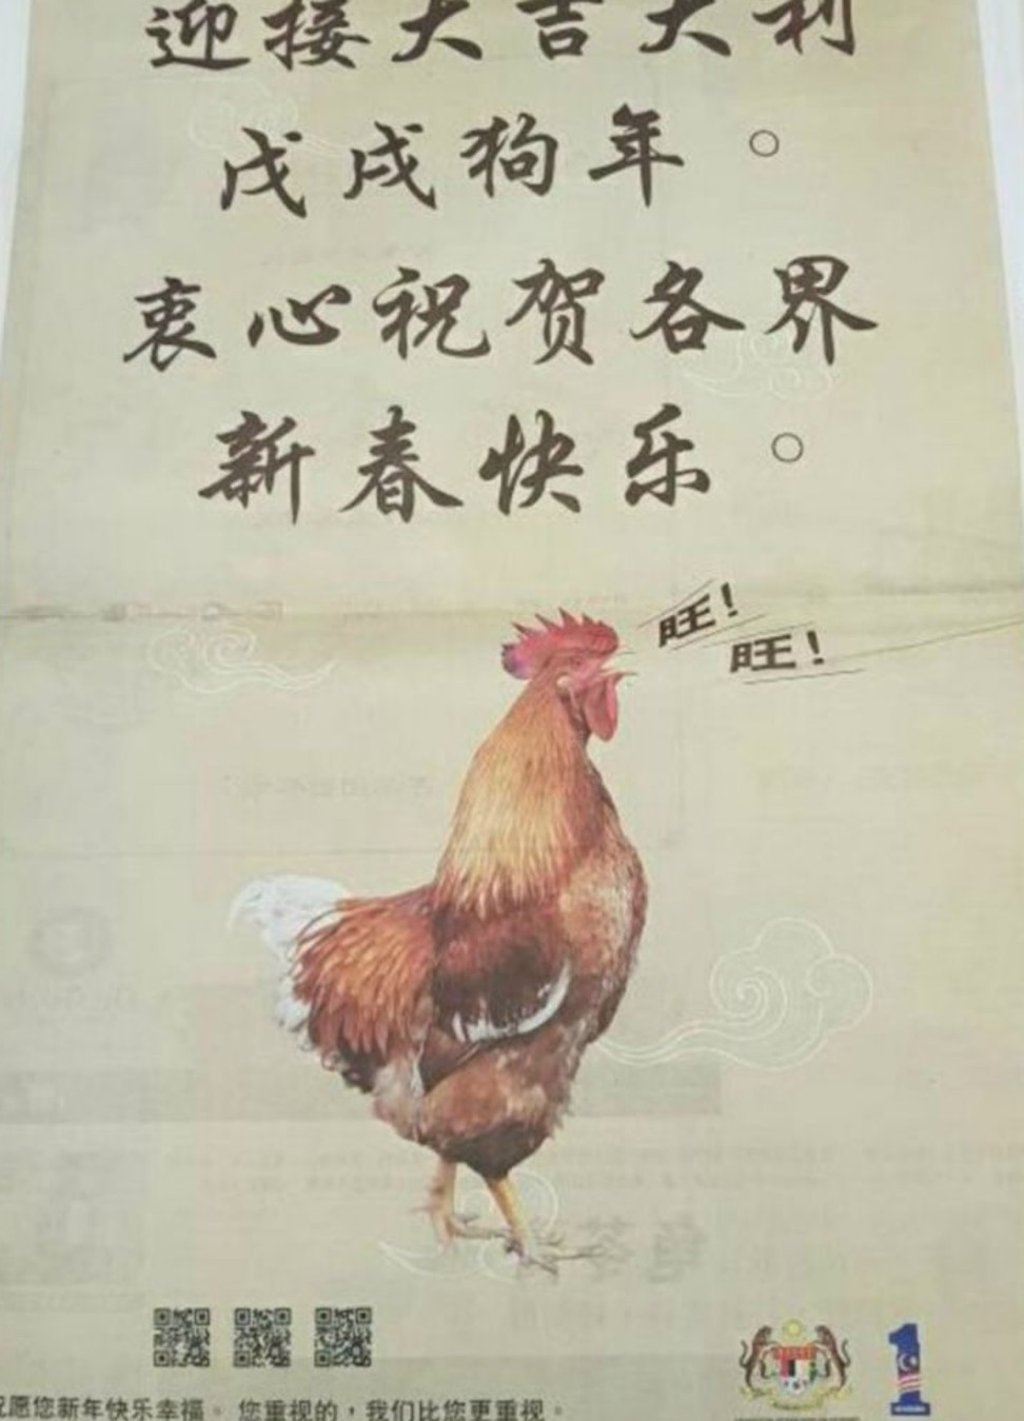 迎接大吉大利
戊戌狗年。
衷心祝贺各界
新春快乐。
旺!
旺!
祝愿您新年快乐幸福。您重视的，我们比您更重视。
1